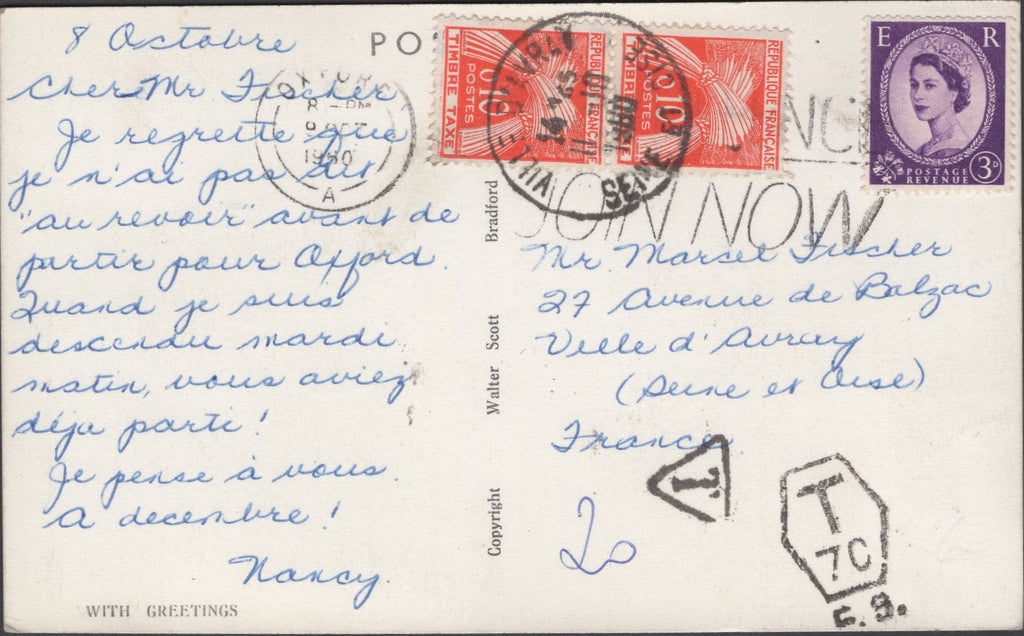 8 Octobre
Cher Mr Fischer
Je regrette que
je n'ai pas dit
"au revoir" avant de
partir pour Oxford.
Quand je suis
descendu mardi
matin, vous aviez
déja parti!
Je pense à vous.
A decembre!
Nancy.
WITH GREETINGS
Copyright Walter Scott Bradford
PO
OXFORD
8 - PM
8 OCT
1960
A
REPUBLIQUE FRANÇAISE
0,10
POSTES
TIMBRE TAXE
REPUBLIQUE FRANÇAISE
0,10
POSTES
TIMBRE
VILLE D'AVRAY
SEINE ET OISE
E R
POSTAGE
REVENUE
3D
JOIN NOW
Mr. Marcel Fischer
27 Avenue de Balzac
Ville d'Avray
(Seine et Oise)
France
T
20
T
7C
F.S.